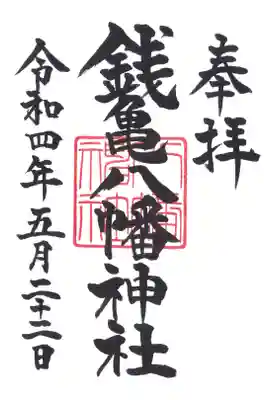 奉拝
銭亀八幡神社
令和四年五月二十二日